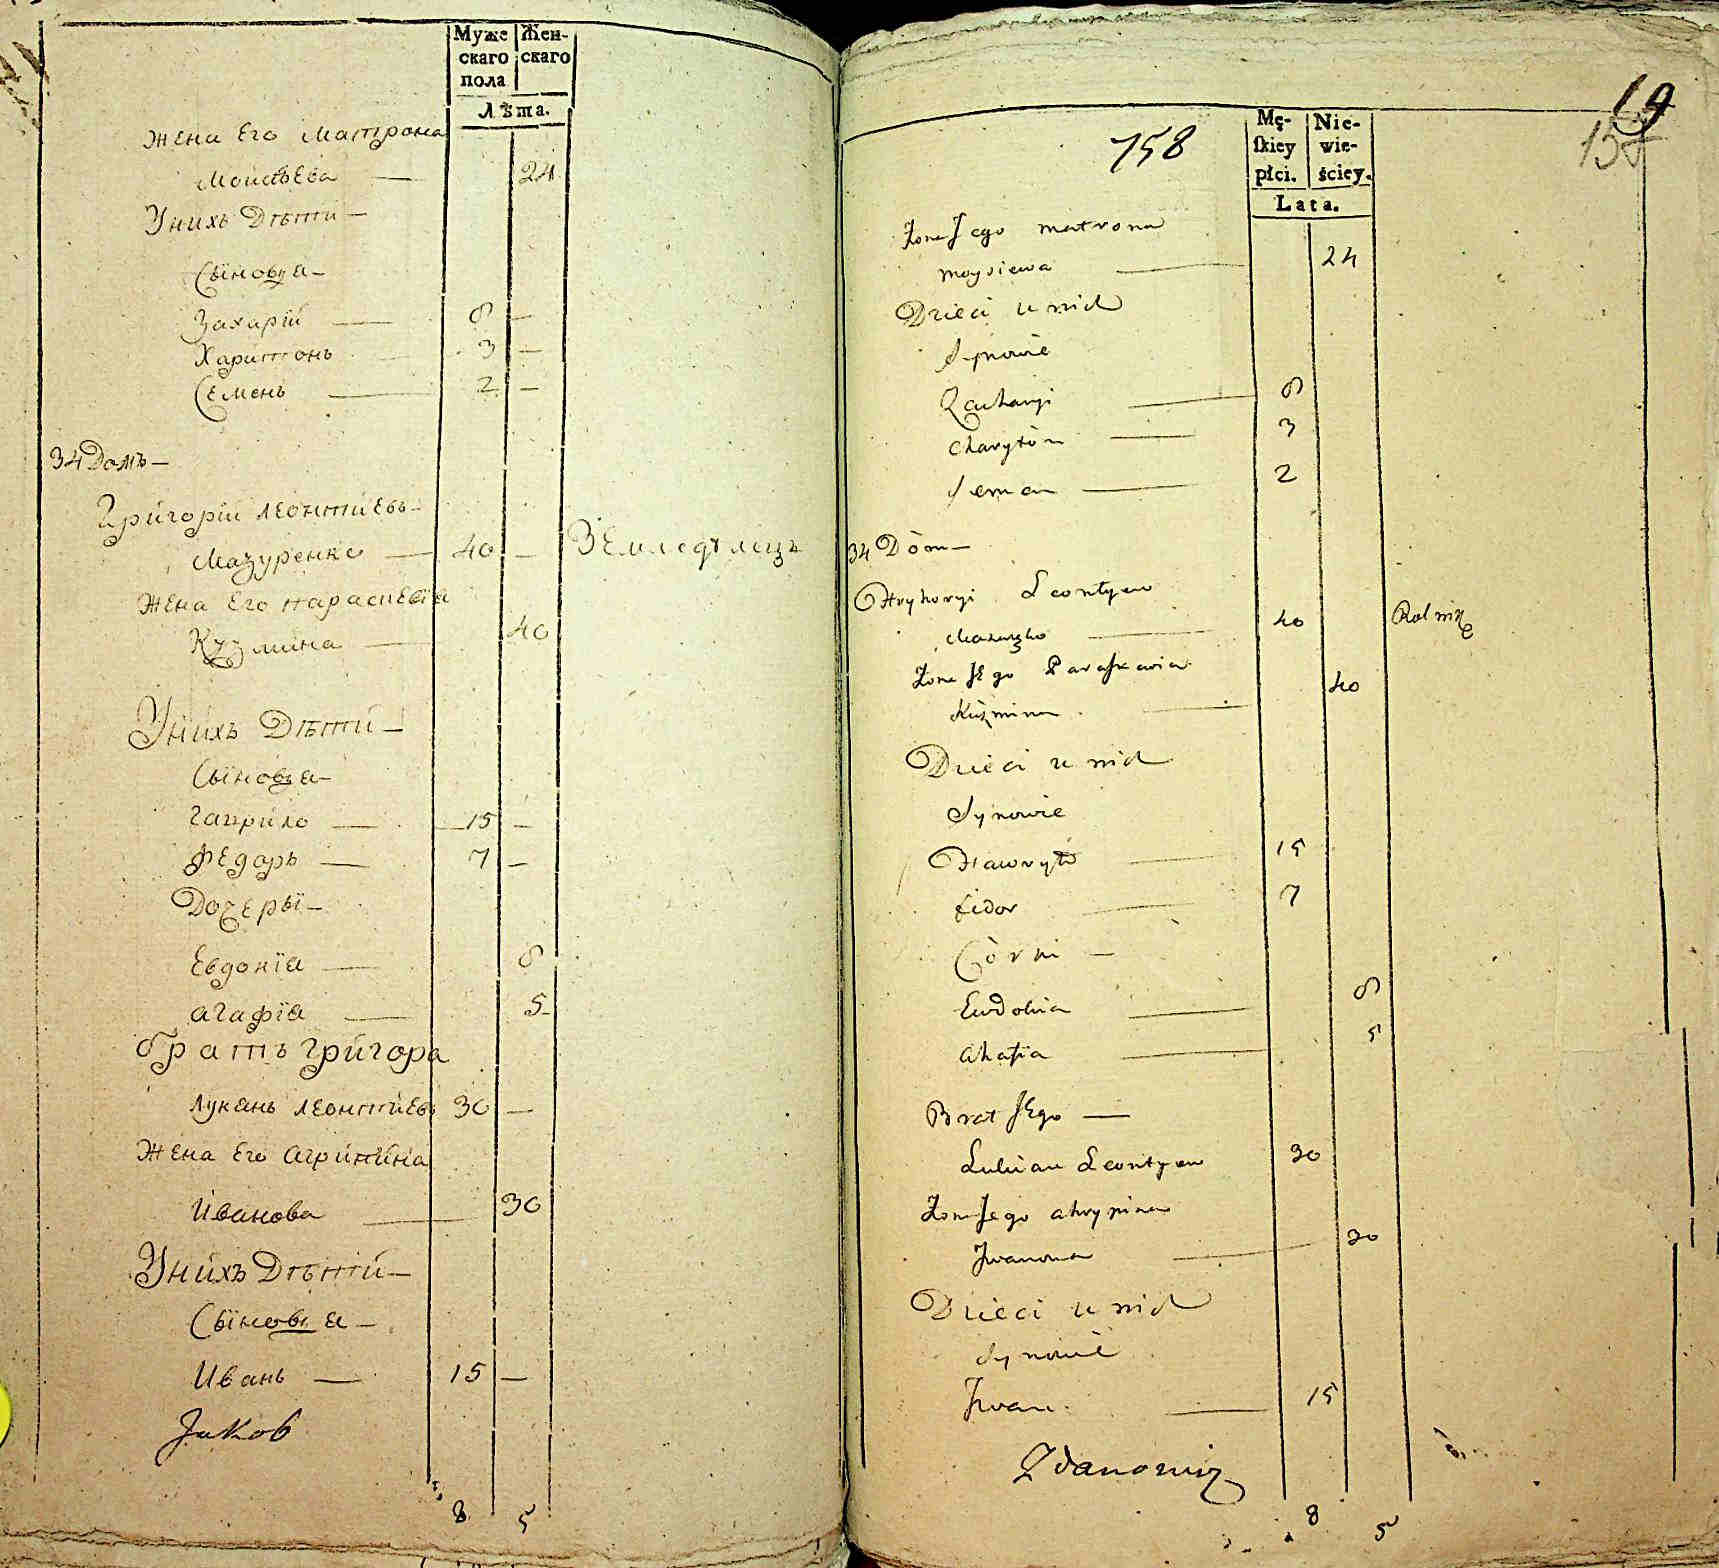 Муже Жен-
скаго скаго
пола
Лѣта.
Жена Его Матрона
Моисѣева — 24
Унихъ Дѣти —
Сыновья —
Захарій — 8 —
Харитонъ — 3 —
Семенъ — 2 —
34 Домъ —
Григорій Леонтиевъ —
Мазуренко — 40 — Земледѣлецъ
Жена Его Параскевія
Кузмина — 40
Унихъ Дѣти —
Сыновья —
Гаврило — 15 —
Федоръ — 7 —
Дочеры —
Евдокія — 8
Агафія — 5
братъ Григора
Лукянъ Леонтиевъ 30 —
Жена Его Агрипина
Иванова — 30
Унихъ Дѣти —
Сыновья —
Иванъ — 15 —
Jakob
8 5
19
158
158
Mę- Nie-
ſkiey wie-
płci. ściey.
Lata.
Żona Jego Matrona
Moysiewa — 24
Dzieci u nich
Synowie
Zacharyi — 8
Charytòn — 3
Semen — 2
34 Dòm —
Hryhoryi Leontyew
— 40 Rolnik
Żona Jego Paraskewia
Kuzmina — 40
Dzieci u nich
Synowie
Hawryło — 15
Fidor — 7
Còrki —
Eudokia — 8
Ahafia — 5
Brat Jego —
Lukian Leontyew 30
Żona Jego Ahrypina
Iwanowa — 30
Dzieci u nich
Synowie
Iwan — 15
Zdanowicz
8 5